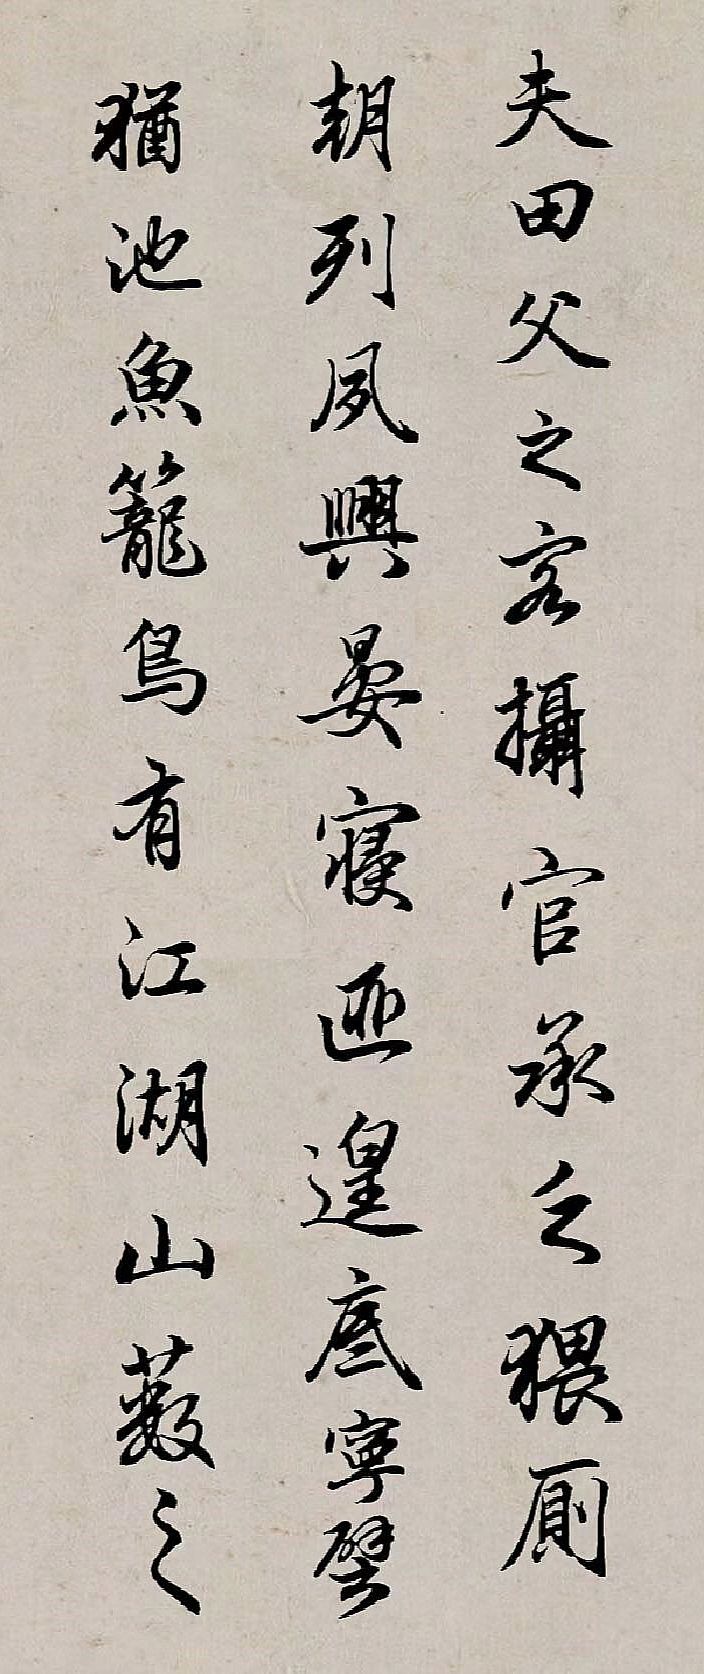 夫田父之客攝官承乏猥厠
朝列夙興晏寢匪遑底寧譬
猶池魚籠鳥有江湖山藪之